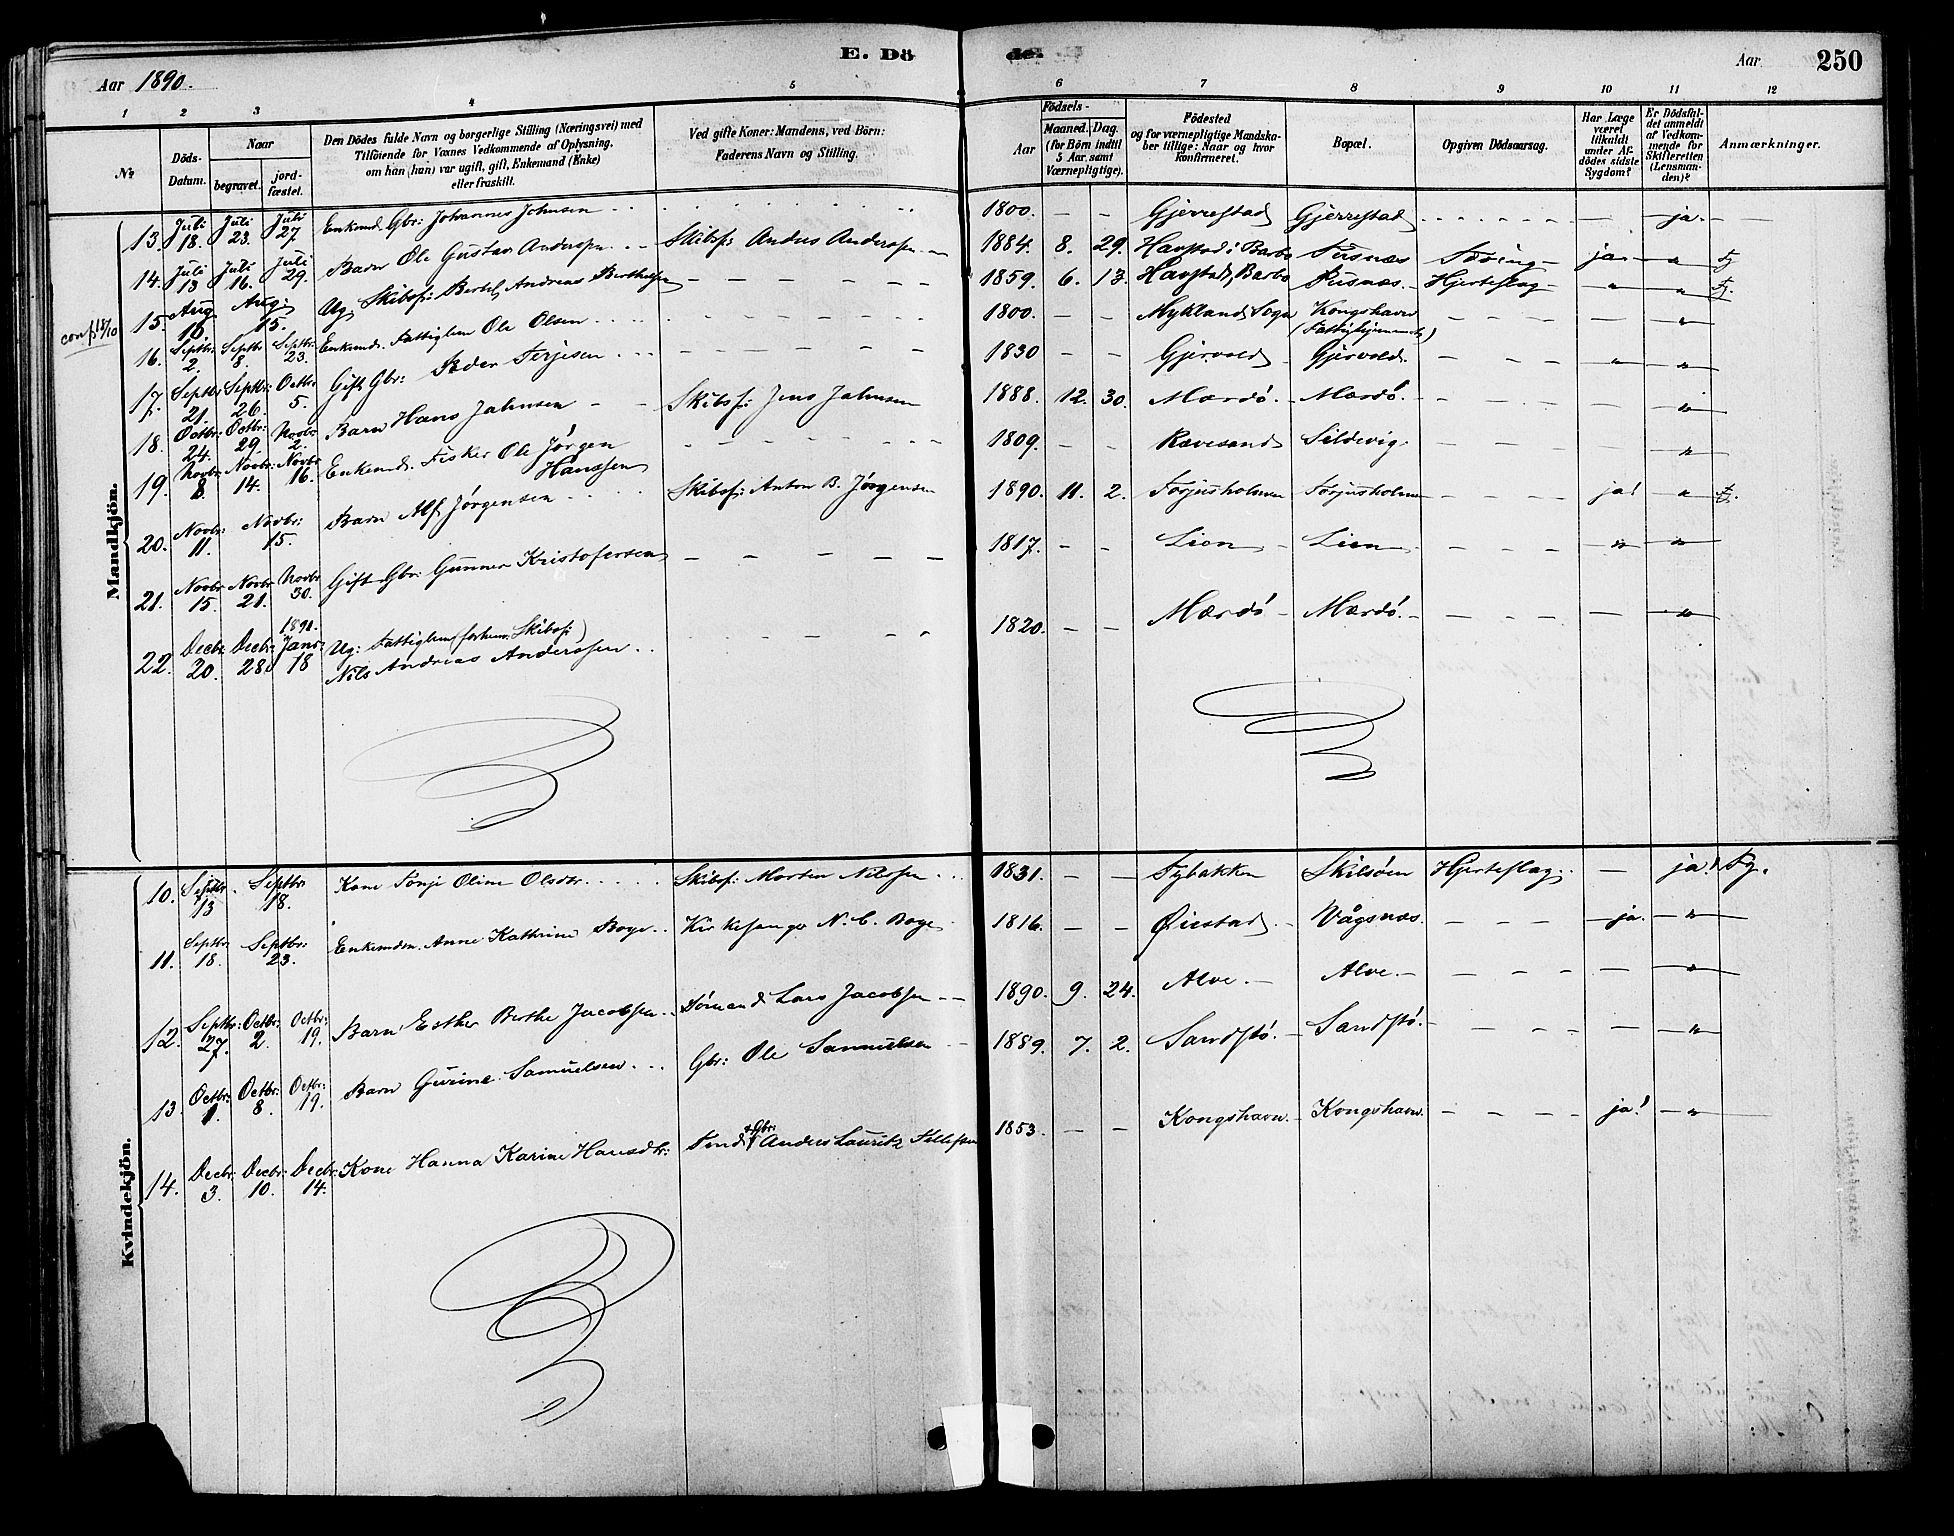 E. Dö de. 250
Aar 1890. Aar
1 2 3 4 5 6 7 8 9 10 11 12
No Döds-Datum. Naar begravet. jord-fæstet. Den Dödes fulde Navn og borgerlige Stilling (Næringsvei) med Tilföiende for Voxnes Vedkommende af Oplysning, om han (hun) var ugift, gift, Enkemand (Enke) eller fraskilt. Ved gifte Koner: Mandens, ved Börn: Faderens Navn og Stilling. Födsels- Aar Maaned. Dag. (for Börn indtil 5 Aar, samt Værnepligtige). Födested og for værnepligtige Mandskaber tillige: Naar og hvor konfirmeret. Bopæl. Opgiven Dödsaarsag. Har Læge været tilkaldt under Afdödes sidste Sygdom? Er Dödsfaldet anmeldt af Vedkommende for Skifteretten (Lensmanden)? Anmærkninger.
Mandkjön.
13. Juli 18. Juli 23. Juli 27. Enkemd. Gbr: Johannes Johnsen 1800. – – Gjerrestad Gjerrestad – ja. –
14. Juli 13 Juli 16. Juli 29. Barn Ole Gustav Andersen Skibsf: Anders Andersen 1884. 8. 29. Havstad i Barbo Pusnæs ja. "
15. Aug. 10. Aug: 15. Ug. Skibsf: Bertel Andreas Berthelsen – – – 1859. 6. 13. Havstad, Barbo Pusnæs. Hjerteslag " "
conf 18/10
16. Septbr. 2. Septbr 8. Septbr: 23. Enkemd. Fattiglem Ole Olsen 1800. – – Mykland Sogn Kongshavn – – "
17. Septbr 21. Septbr: 26. Octbr. 5. Gift Gbr: Peder Terjesen 1830 – – Gjervold Gjervold. – – " "
18. Octbr: 24. Octbr: 29. Novbr: 2. Barn Hans Jahnsen – – Skibsf: Jens Jahnsen 1888. 12. 30. Mærdö. – Mærdö. – – "
19. Novbr: 8. Novbr: 14. Novbr 16. Enkemd. Fisker Ole Jørgen Hanssen 1809. – – Ravesand Sildevig. – – "
20. Novbr: 11. Novbr: 15. Barn Alf Jørgensen Skibsf: Anton B. Jørgensen 1890. 11. 2. Torjusholmen Torjusholmen – – ja! "
21. Novbr 15. Novbr 21. Novbr 30. Gift Gbr: Gunner Kristofersen – – – 1817. – – Lien – Lien. – – " "
22. Decbr. 20. Decbr: 28. 1891. Janr: 18 Ug: Fattiglem (forhen. Skibsf:)
Nils Andreas Andersen 1820. – – Mærdö – Mærdö. – – "
Kvindekjön.
10. Septbr. 13 Septbr 18. Kone Tonje Oline Olsdtr. Skibsf: Morten Nilssen 1831. – – Tybakken Skilsöen Hjerteslag. – ja! Ty.
11. Septbr. 18. Septbr: 23. Enkemdsn. Anne Kathrine Boye Kirkesanger N. C. Boye 1816. – – Öiestad. – Vågsnæs. – – ja. – "
12. Septbr: 27. Octbr: 2. Octbr: 19. Barn Esther Berthe Jacobsen Sømand Lars Jacobsen – 1890. 9. 24. Alve. – Alve. – – "
13 Octbr: 1. Octbr: 8. Octbr: 19. Barn Gurine Samuelsen Gbr: Ole Samuelsen 1889. 7. 2. Sandstö. – Sandstö. – – "
14. Decbr. 3. Decbr: 10. Decbr: 14. Kone Hanna Karine Hansdtr: Tend & Gbr: Anders Lauritz Tellefsen 1853. – – Kongshavn. – Kongshavn. – – ja! – "